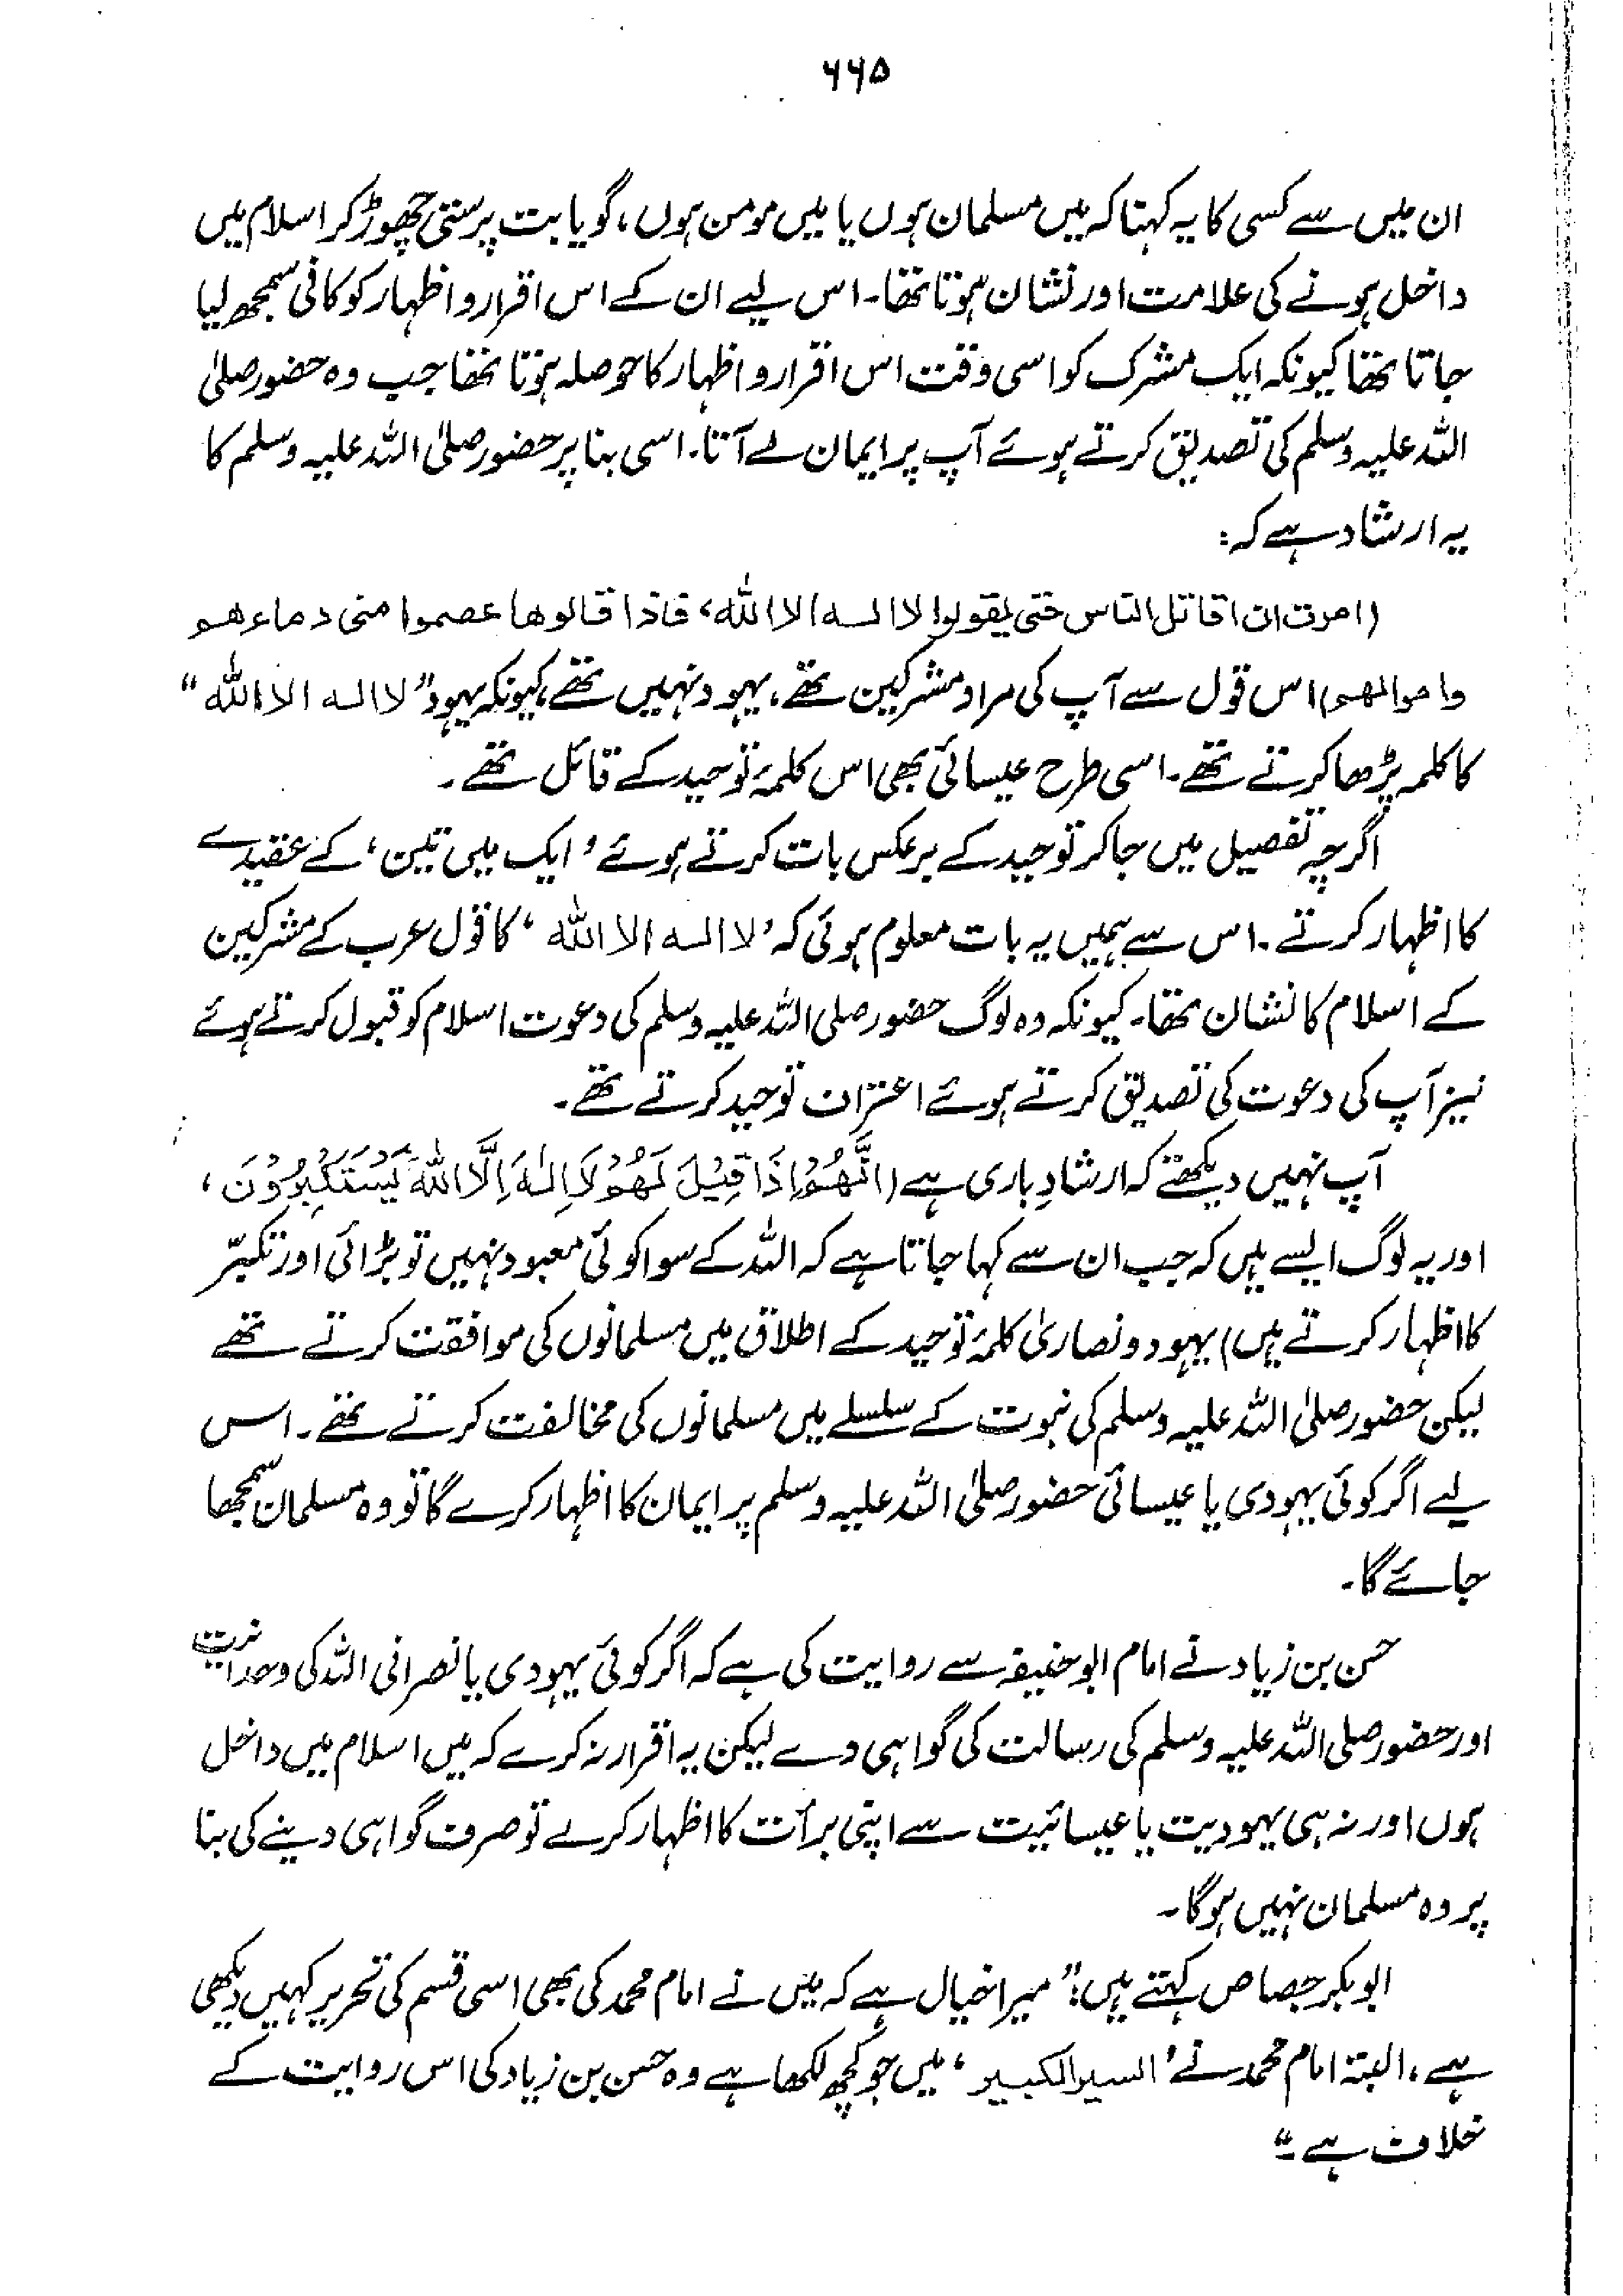 ۶۶۵
ان میں سے کسی کا یہ کہنا کہ میں مسلمان ہوں یا میں مومن ہوں، گویا بت پرستی چھوڑ کر اسلام میں
داخل ہونے کی علامت اور نشان ہوتا تھا۔ اس لیے ان کے اس اقرار و اظہار کو کافی سمجھ لیا
جاتا تھا کیونکہ ایک مشرک کو اسی وقت اس اقرار و اظہار کا حوصلہ ہوتا تھا جب وہ حضور صلی
اللہ علیہ وسلم کی تصدیق کرتے ہوئے آپ پر ایمان لے آتا۔ اسی بنا پر حضور صلی اللہ علیہ وسلم کا
یہ ارشاد ہے کہ:
(امرت ان اقاتل الناس حتی یقولوا لا الہ الا اللہ، فاذا قالوھا عصموا منی دماءھم
واموالھم) اس قول سے آپ کی مراد مشرکین تھے، یہود نہیں تھے، کیونکہ یہود ”لا الہ الا اللہ“
کا کلمہ پڑھا کرتے تھے۔ اسی طرح عیسائی بھی اس کلمۂ توحید کے قائل تھے۔
اگرچہ تفصیل میں جا کر توحید کے برعکس بات کرتے ہوئے ’ایک میں تین‘ کے عقیدے
کا اظہار کرتے۔ اس سے ہمیں یہ بات معلوم ہوئی کہ ’لا الہ الا اللہ‘ کا قول عرب کے مشرکین
کے اسلام کا نشان تھا۔ کیونکہ وہ لوگ حضور صلی اللہ علیہ وسلم کی دعوت اسلام کو قبول کرتے ہوئے
نیز آپ کی دعوت کی تصدیق کرتے ہوئے اعتراف توحید کرتے تھے۔
آپ نہیں دیکھتے کہ ارشادِ باری ہے (اِنَّهُمْ اِذَا قِيْلَ لَهُمْ لَا اِلٰهَ اِلَّا اللّٰهُ يَسْتَكْبِرُوْنَ،
اور یہ لوگ ایسے ہیں کہ جب ان سے کہا جاتا ہے کہ اللہ کے سوا کوئی معبود نہیں تو بڑائی اور تکبّر
کا اظہار کرتے ہیں) یہود و نصاریٰ کلمۂ توحید کے اطلاق میں مسلمانوں کی موافقت کرتے تھے
لیکن حضور صلی اللہ علیہ وسلم کی نبوت کے سلسلے میں مسلمانوں کی مخالفت کرتے تھے۔ اس
لیے اگر کوئی یہودی یا عیسائی حضور صلی اللہ علیہ وسلم پر ایمان کا اظہار کرے گا تو وہ مسلمان سمجھا
جائے گا۔
حسن بن زیاد نے امام ابوحنیفہ سے روایت کی ہے کہ اگر کوئی یہودی یا نصرانی اللہ کی وحدانیت
اور حضور صلی اللہ علیہ وسلم کی رسالت کی گواہی دے لیکن یہ اقرار نہ کرے کہ میں اسلام میں داخل
ہوں اور نہ ہی یہودیت یا عیسائیت سے اپنی برأت کا اظہار کرے تو صرف گواہی دینے کی بنا
پر وہ مسلمان نہیں ہوگا۔
ابوبکر جصاص کہتے ہیں: ”میرا خیال ہے کہ میں نے امام محمد کی بھی اسی قسم کی تحریر کہیں دیکھی
ہے، البتہ امام محمد نے ’السیر الکبیر‘ میں جو کچھ لکھا ہے وہ حسن بن زیاد کی اس روایت کے
خلاف ہے۔“